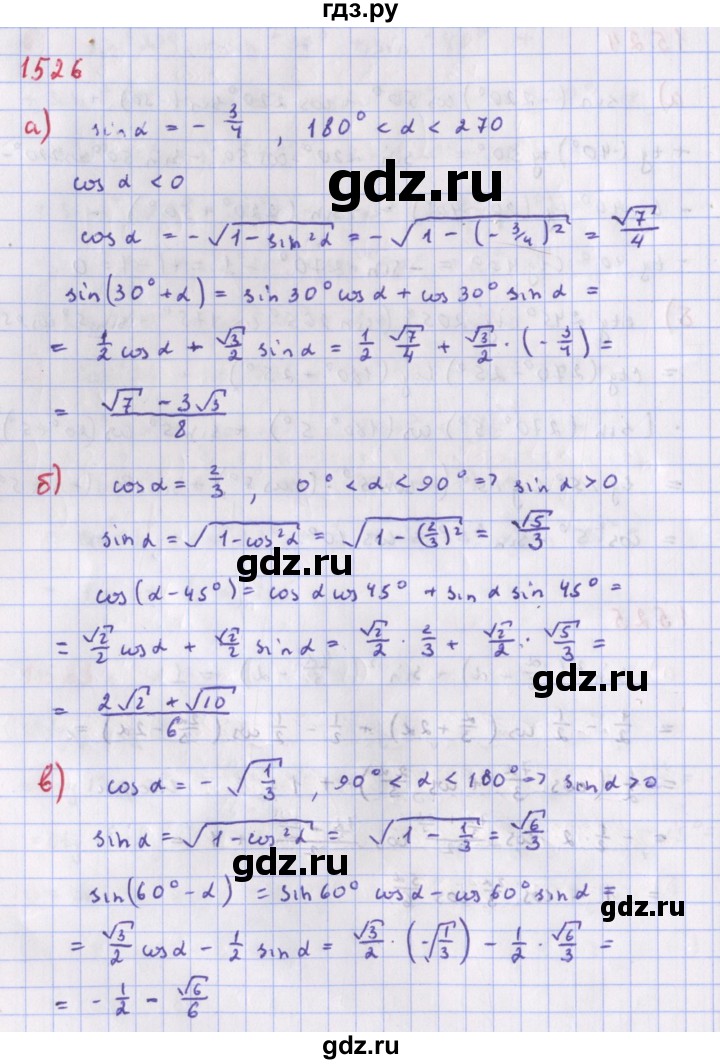 гдз.ру
1526
а) sin α = - 3/4 , 180° < α < 270
cos α < 0
gdz.ru
cos α = -√(1 - sin²α) = -√(1 - (-3/4)²) = √7/4
sin(30° + α) = sin 30° cos α + cos 30° sin α =
gdz.ru
= 1/2 cos α + √3/2 sin α = 1/2 √7/4 + √3/2 · (-3/4) =
= (√7 - 3√3)/8
gdz.ru
б) cos α = 2/3 , 0° < α < 90° => sin α > 0
sin α = √(1 - cos²α) = √(1 - (2/3)²) = √5/3
gdz.ru
cos(α - 45°) = cos α cos 45° + sin α sin 45° =
= √2/2 cos α + √2/2 sin α = √2/2 · 2/3 + √2/2 · √5/3 =
gdz.ru
= (2√2 + √10)/6
в) cos α = - √(1/3) , 90° < α < 180° => sin α > 0
gdz.ru
sin α = √(1 - cos²α) = √(1 - 1/3) = √6/3
gdz.ru
sin(60° - α) = sin 60° cos α - cos 60° sin α =
= √3/2 cos α - 1/2 sin α = √3/2 · (-√(1/3)) - 1/2 · √6/3 =
= - 1/2 - √6/6
gdz.ru
gdz.ru